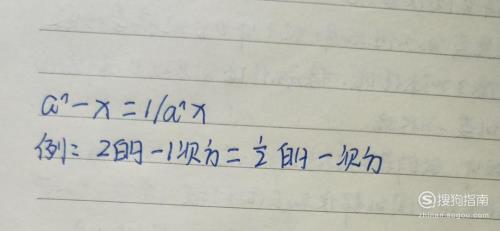 a^-x=1/a^x
例：2的-1次方=½的一次方
搜狗指南
zhinan.sogou.com